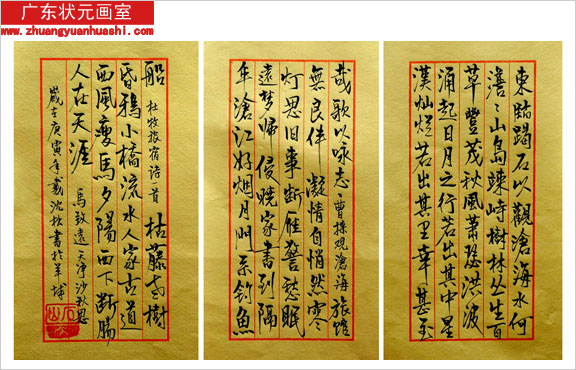 广东状元画室
www.zhuangyuanhuashi.com
東臨碣石以觀滄海水何
澹々山島竦峙樹林丛生百
草豐茂秋風蕭瑟洪波
涌起日月之行若出其中星
漢灿烂若出其里幸甚至
哉歌以咏志 曹操观滄海 旅馆
無良伴凝情自悄然寒
灯思旧事断雁警愁眠
遠梦歸侵曉家書到隔
年滄江好烟月門系钓魚
船 杜牧旅宿诗一首 枯藤老樹
昏鴉小橋流水人家古道
西風瘦馬夕陽西下断腸
人在天涯 馬致遠天净沙秋思
歲在庚寅年戴沈書於羊